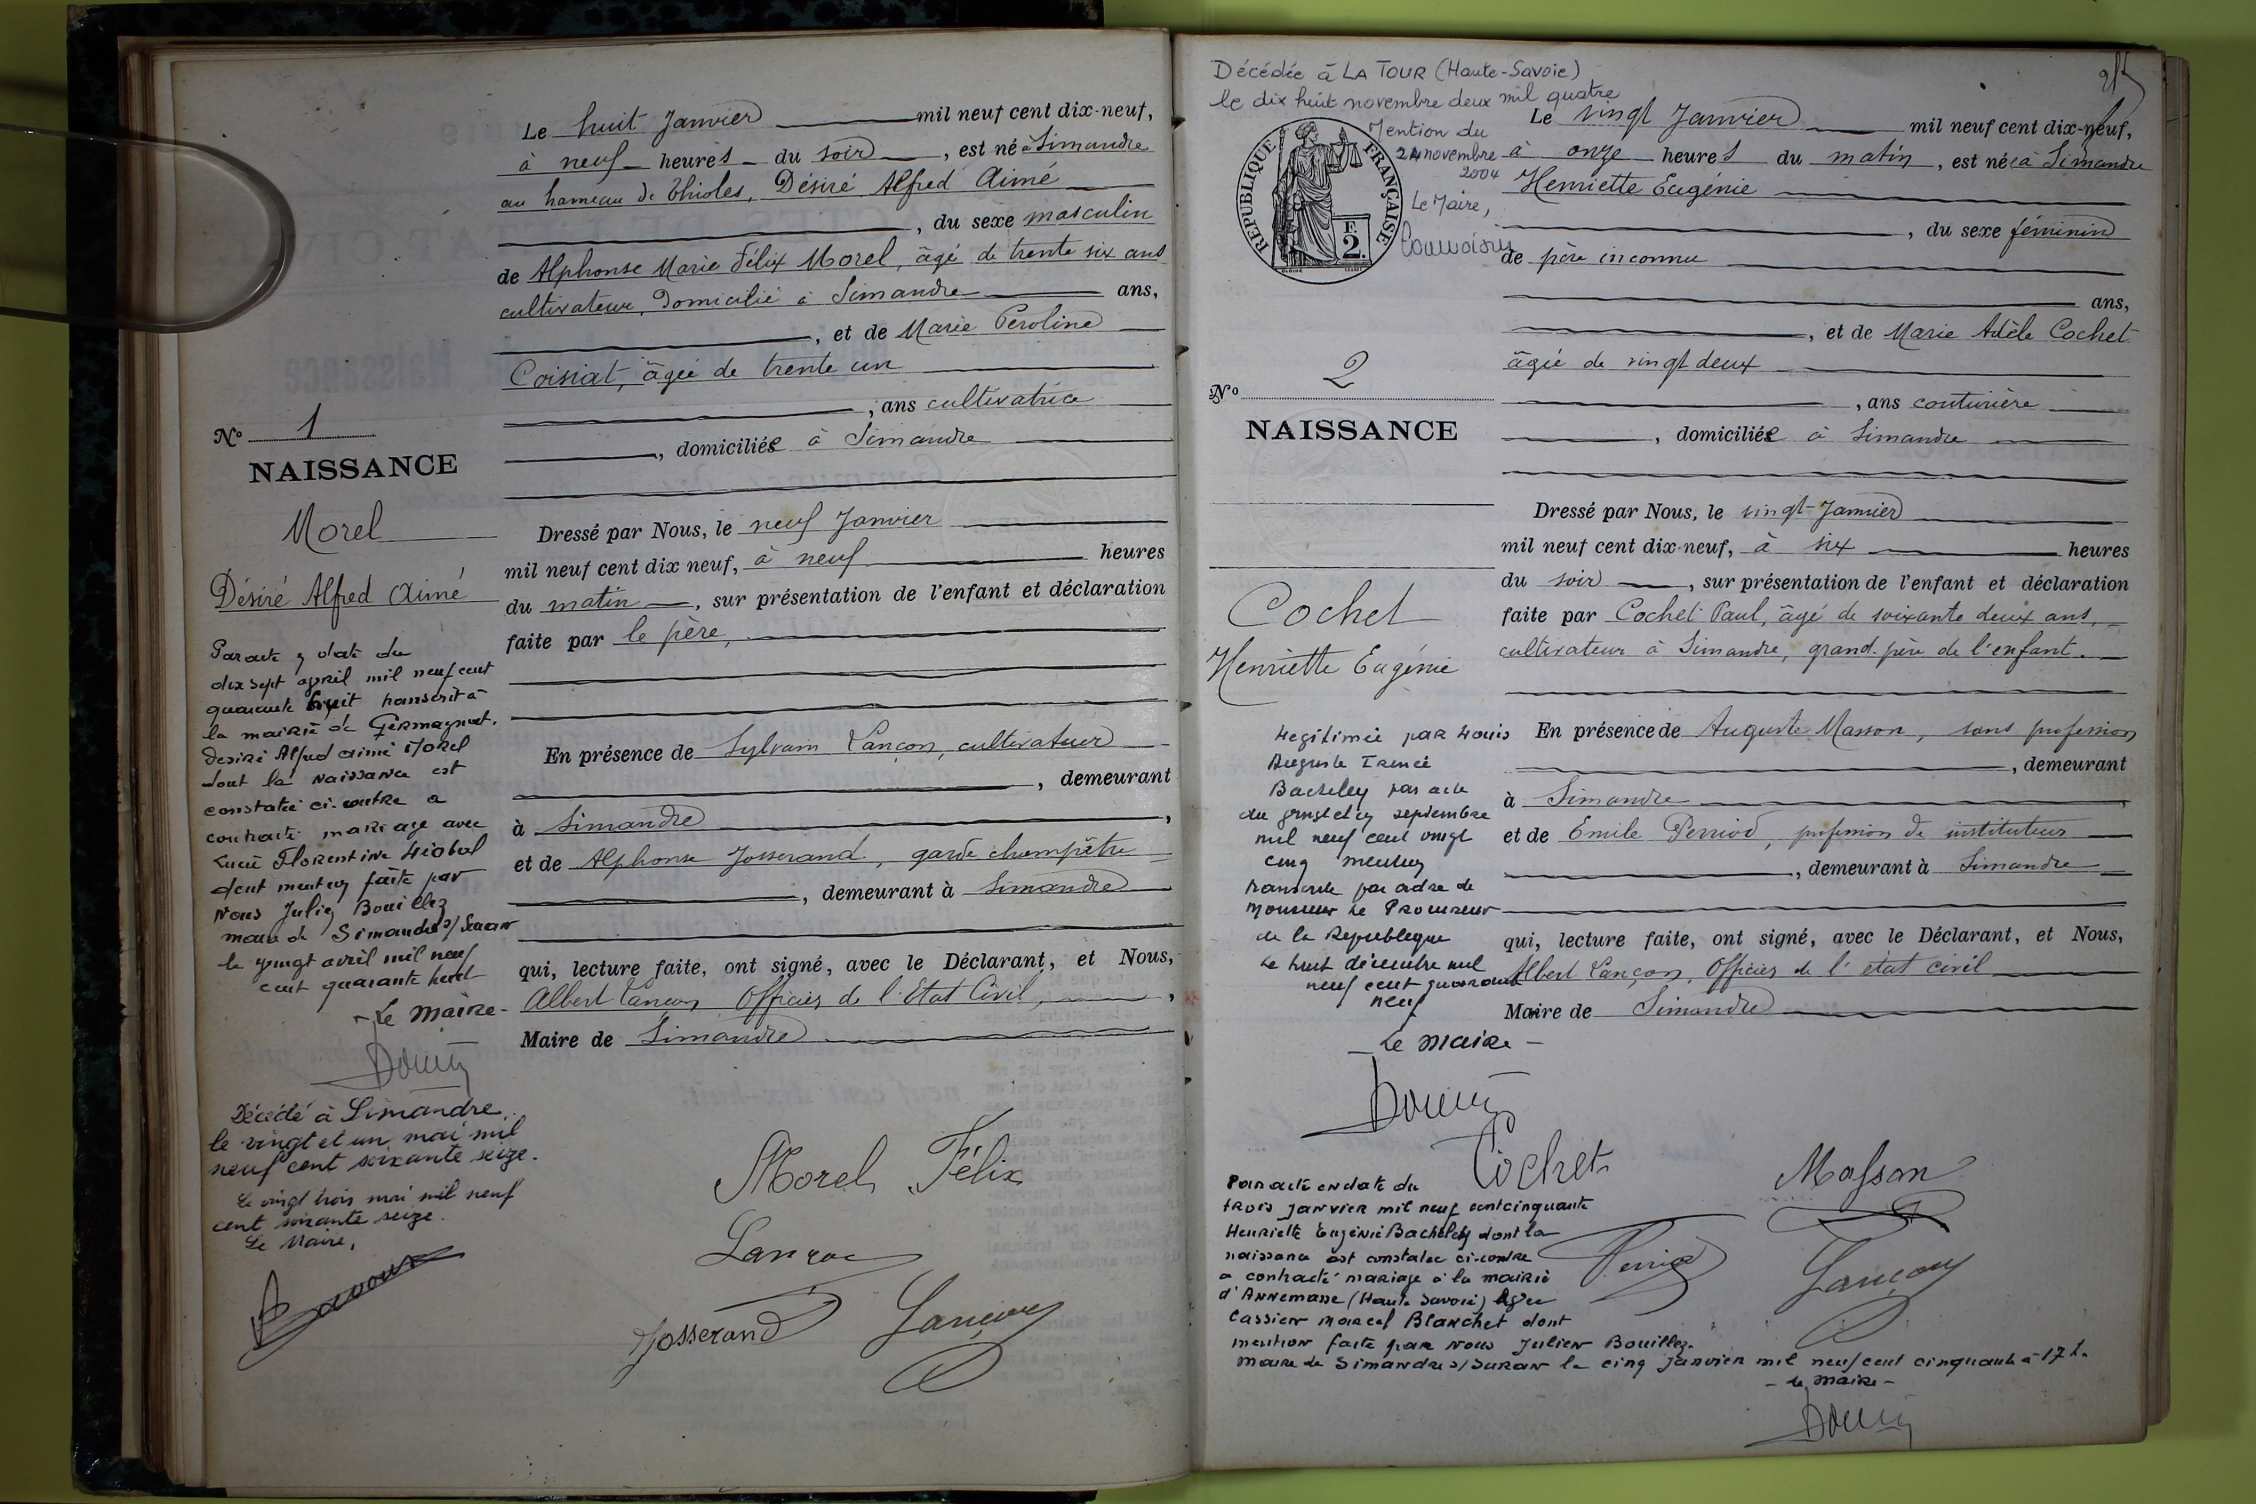 Le huit Janvier mil neuf cent dix-neuf,
à neuf heures du soir, est né à Simandre
au hameau de Thioles, Désiré Alfred Aimé
, du sexe masculin
de Alphonse Marie Félix Morel, âgé de trente six ans
cultivateur, domicilié à Simandre ans,
, et de Marie Péroline
Coisiat, âgée de trente un
, ans cultivatrice
, domiciliée à Simandre
Nº 1
NAISSANCE
Morel
Désiré Alfred Aimé
Dressé par Nous, le neuf Janvier
mil neuf cent dix neuf, à neuf heures
du matin, sur présentation de l'enfant et déclaration
faite par le père,
En présence de Sylvain Lançon, cultivateur
, demeurant
à Simandre,
et de Alphonse Josserand, garde champêtre
, demeurant à Simandre
qui, lecture faite, ont signé, avec le Déclarant, et Nous,
Albert Lançon Officier de l'Etat Civil,
Maire de Simandre
Par acte en date du
dix sept april mil neuf cent
quarante huit transcrit à
la mairie de Germagnat.
Désiré Alfred aimé Morel
dont la naissance est
constatée ci-contre a
contracté mariage avec
Lucie Florentine
dont mention faite par
Nous Julien Bouillez
maire de Simandre s/ Suran
le vingt avril mil neuf
cent quarante huit
- Le Maire -
Décédé à Simandre
le vingt et un mai mil
neuf cent soixante seize.
Le vingt trois mai mil neuf
cent soixante seize.
Le Maire,
Morel Félix
Lançon
Josserand Lançon
Décédée à LA TOUR (Haute-Savoie)
le dix huit novembre deux mil quatre
Mention du
24 novembre
2004
Le Maire,
RÉPUBLIQUE FRANÇAISE
E
2.
Le vingt Janvier mil neuf cent dix-neuf,
à onze heures du matin, est née à Simandre
Henriette Eugénie
, du sexe féminin
de père inconnu
ans,
, et de Marie Adèle Cochet
âgée de vingt deux
, ans couturière
, domiciliée à Simandre
Nº 2
NAISSANCE
Cochet
Henriette Eugénie
Dressé par Nous, le vingt Janvier
mil neuf cent dix-neuf, à six heures
du soir, sur présentation de l'enfant et déclaration
faite par Cochet Paul, âgé de soixante deux ans,
cultivateur à Simandre, grand-père de l'enfant.
En présence de Auguste Masson, sans profession
, demeurant
à Simandre
et de Emile Perriod, profession de instituteur
, demeurant à Simandre
qui, lecture faite, ont signé, avec le Déclarant, et Nous,
Albert Lançon, Officier de l'état civil
Maire de Simandre
Légitimée par Louis
Auguste Irénée
Bacheley par acte
du vingt et un septembre
mil neuf cent vingt
cinq mention
transcrite par ordre de
Monsieur le Procureur
de la République
le huit décembre mil
neuf cent quarante
neuf
- Le Maire -
Cochet
Masson
Perriod
Lançon
Par acte en date du
trois janvier mil neuf cent cinquante
Henriette Eugénie Bacheley dont la
naissance est constatée ci-contre
a contracté mariage à la mairie
d'Annemasse (Haute Savoie) avec
Cassien Marcel Blanchet dont
mention faite par nous Julien Bouillez.
maire de Simandre s/ Suran le cinq janvier mil neuf cent cinquante à 17 h.
- le Maire -